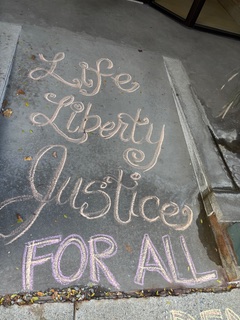 Life
Liberty
Justice
FOR ALL